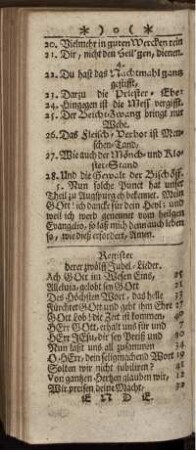 * ) o ( *
20. Vielmehr in guten Wercken rein
21. Dir, nicht den Heil'gen, dienen.
4.
22. Du hast das Nachtmahl gantz
gestifft,
23. Darzu die Priester-Ehe:
24. Hingegen ist die Meß vergifft.
25. Der Beicht-Zwang bringt nur
Wehe.
26. Das Fleisch-Verbot ist Men-
schen-Tand,
27. Wie auch der Mönch- und Klo-
ster-Stand
28. Und die Gewalt der Bischöff.
5. Nun solche Punct hat unser
Theil zu Augspurg bekennet. Mein
GOtt ich dancke für dein Heyl: und
weil ich werd genennet vom heilgen
Evangelio, so laß mich denn auch leben
so, wie diß erfordert, Amen.
Register
derer zwölff Jubel-Lieder.
Ach GOtt im Wesen Eins, 25
Alleluia, gelobt sey GOtt 21
Des Höchsten Wort, das helle 33
Fürchtet GOtt und gebt ihm Ehr 27
GOtt Lob! die Zeit ist kommen, 40
HErr GOtt, erhalt uns für und 7
HErr JEsu, dir sey Preiß und 30
Nun laßt uns all zusammen 34
O HErr, dein seligmachend Wort 19
Solten wir nicht jubiliren? 42
Von gantzen Hertzen glauben wir, 42
Wir preisen deine Macht, 32
E N D E.